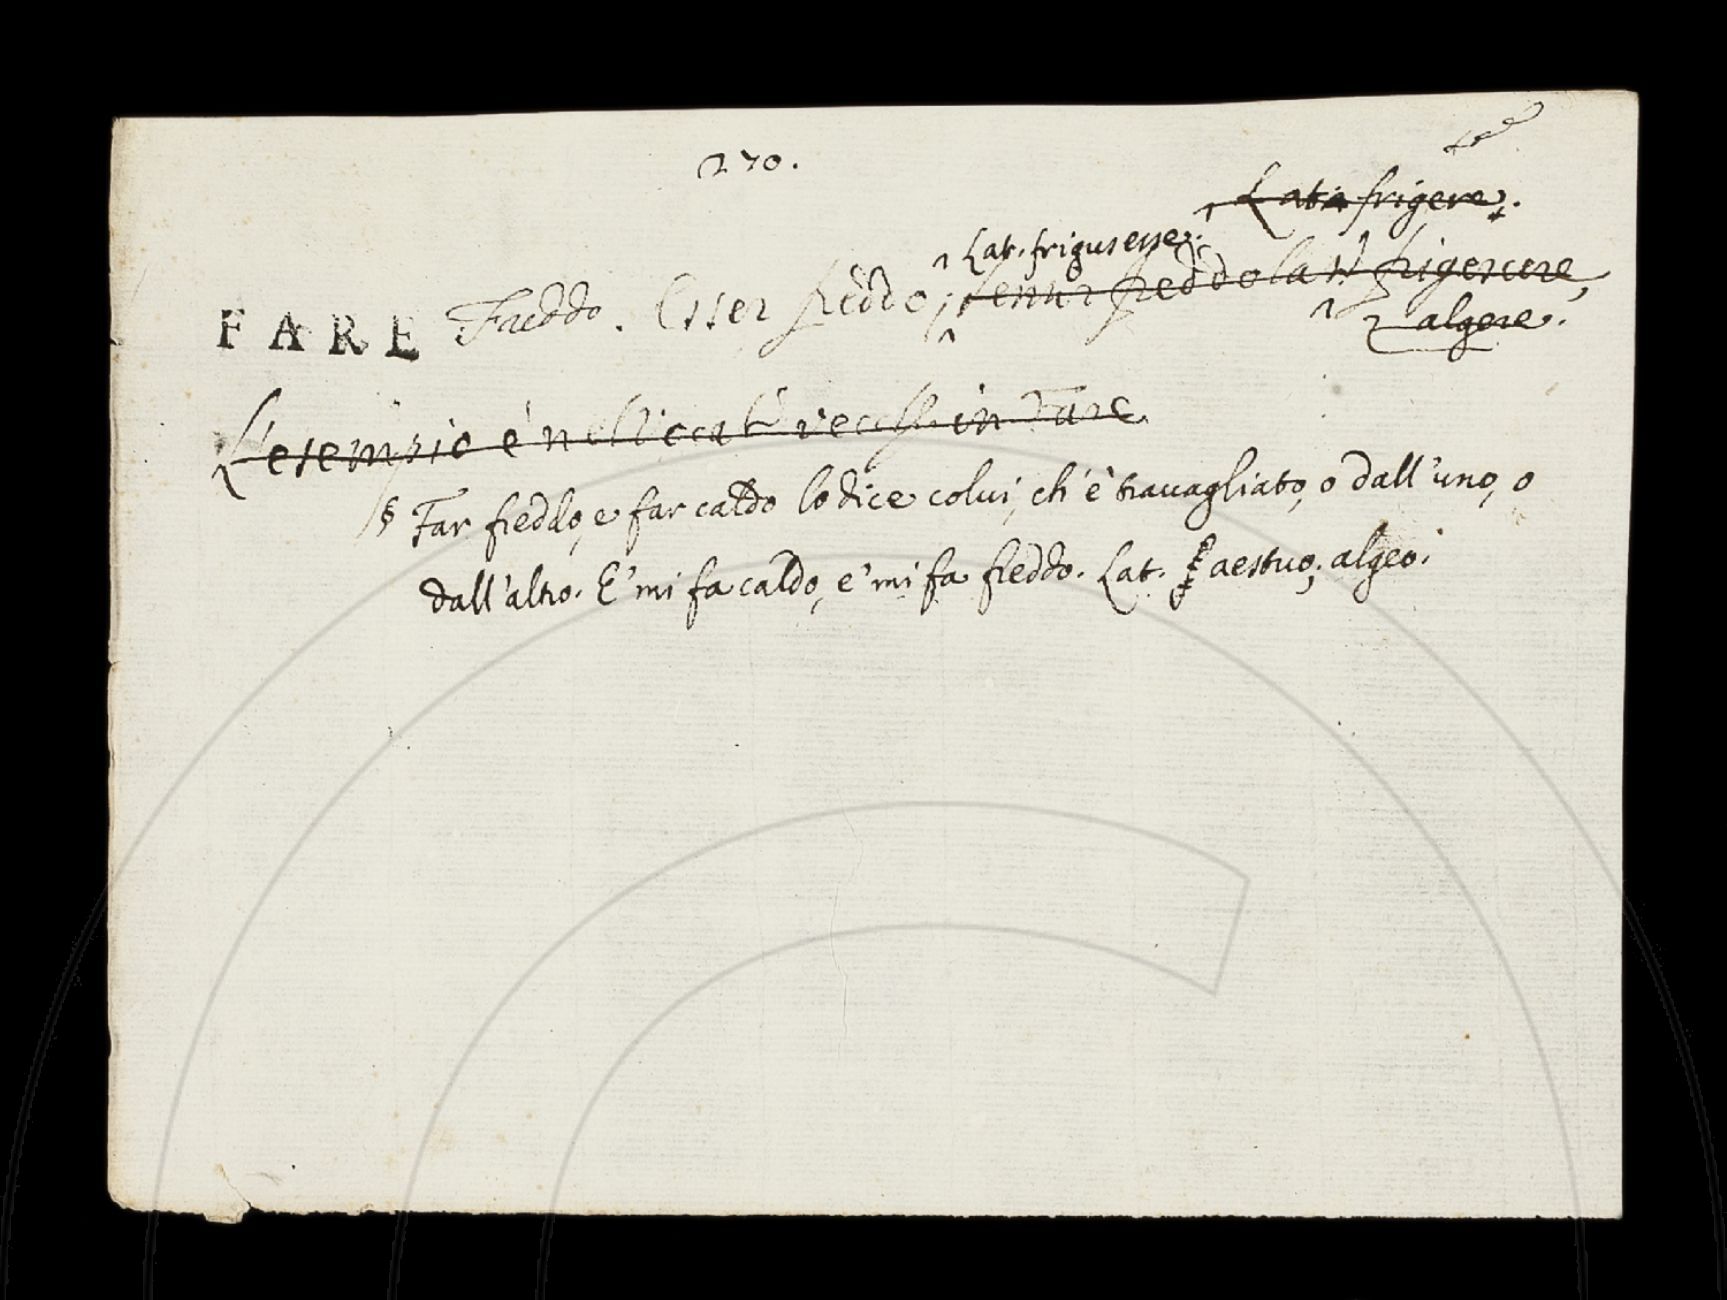 270.
Lat. frigere.
Lat. frigus esse.
FARE Freddo. Esser freddo; senur freddo lat. frigescere,
algere.
L'esempio è nelli ecat vecch in Fare
§ Far freddo, e far caldo lo dice colui, ch'è travagliato, o dall'uno, o
dall'altro. E' mi fa caldo, e' mi fa freddo. Lat. aestuo, algeo.